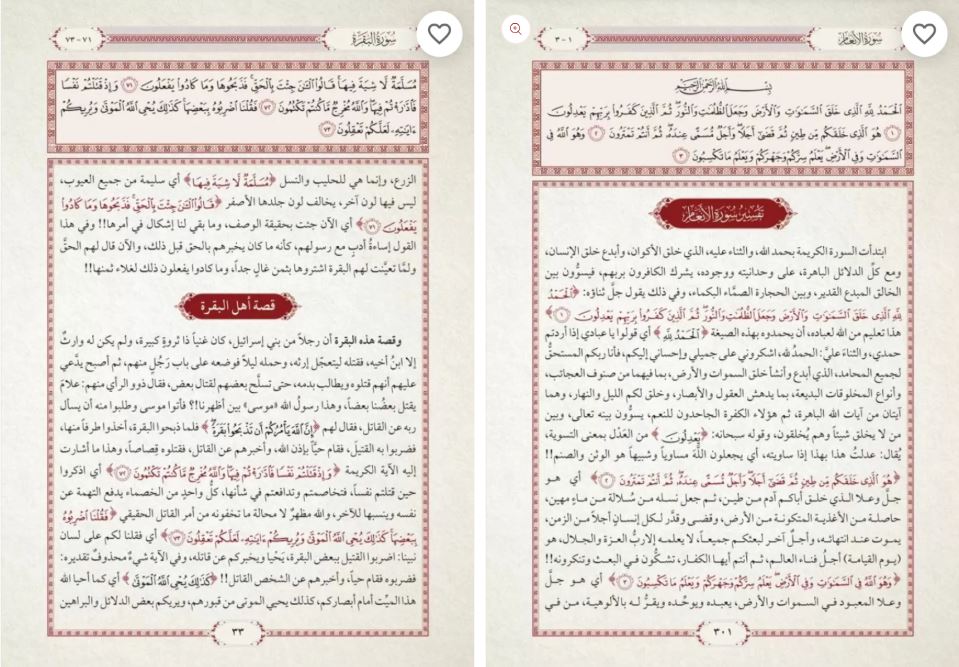 سُورَةُ الأَنْعَامِ
١ - ٣
بِسْمِ اللَّهِ الرَّحْمَٰنِ الرَّحِيمِ
ٱلْحَمْدُ لِلَّهِ ٱلَّذِى خَلَقَ ٱلسَّمَٰوَٰتِ وَٱلْأَرْضَ وَجَعَلَ ٱلظُّلُمَٰتِ وَٱلنُّورَ ثُمَّ ٱلَّذِينَ كَفَرُوا۟ بِرَبِّهِمْ يَعْدِلُونَ
١ هُوَ ٱلَّذِى خَلَقَكُم مِّن طِينٍ ثُمَّ قَضَىٰٓ أَجَلًا وَأَجَلٌ مُّسَمًّى عِندَهُۥ ثُمَّ أَنتُمْ تَمْتَرُونَ ٢ وَهُوَ ٱللَّهُ فِى
ٱلسَّمَٰوَٰتِ وَفِى ٱلْأَرْضِ يَعْلَمُ سِرَّكُمْ وَجَهْرَكُمْ وَيَعْلَمُ مَا تَكْسِبُونَ ٣
تَفْسِيرُ سُورَةِ الأَنْعَامِ
ابتدأت السورة الكريمة بحمد الله، والثناء عليه، الذي خلق الأكوان، وأبدع خلق الإنسان،
ومع كلِّ الدلائل الباهرة، على وحدانيته ووجوده، يشرك الكافرون بربهم، فيسوُّون بين
الخالق المبدع القدير، وبين الحجارة الصمَّاء البكماء، وفي ذلك يقول جلَّ ثناؤه: ﴿ٱلْحَمْدُ
لِلَّهِ ٱلَّذِى خَلَقَ ٱلسَّمَٰوَٰتِ وَٱلْأَرْضَ وَجَعَلَ ٱلظُّلُمَٰتِ وَٱلنُّورَ ثُمَّ ٱلَّذِينَ كَفَرُوا۟ بِرَبِّهِمْ يَعْدِلُونَ ١﴾
هذا تعليم من الله لعباده، أن يحمدوه بهذه الصيغة ﴿ٱلْحَمْدُ لِلَّهِ﴾ أي قولوا يا عبادي إذا أردتم
حمدي، والثناءَ عليَّ: الحمدُ لله، اشكروني على جميلي وإحساني إليكم، فأنا ربكم المستحقُّ
لجميع المحامد، الذي أبدع وأنشأ خلق السموات والأرض، بما فيهما من صنوف العجائب،
وأنواع المخلوقات البديعة، بما يدهش العقول والأبصار، وخلق لكم الليل والنهار، وهما
آيتان من آيات الله الباهرة، ثم هؤلاء الكفرة الجاحدون للنعم، يسوُّون بينه تعالى، وبين
من لا يخلق شيئاً وهم يُخلقون، وقوله سبحانه: ﴿يَعْدِلُونَ﴾ من العَدْل بمعنى التسوية،
يُقال: عدلتُ هذا بهذا إذا ساويته، أي يجعلون اللَّهَ مساوياً وشبيهاً هو الوثن والصنم!!
﴿هُوَ ٱلَّذِى خَلَقَكُم مِّن طِينٍ ثُمَّ قَضَىٰٓ أَجَلًا وَأَجَلٌ مُّسَمًّى عِندَهُۥ ثُمَّ أَنتُمْ تَمْتَرُونَ ٢﴾ أي هو
جلَّ وعلا الذي خلق أباكم آدم من طين، ثم جعل نسله من سُلالة من ماءٍ مهين،
حاصلة من الأغذية المتكونة من الأرض، وقضى وقدَّر لكل إنسانٍ أجلاً من الزمن،
يموت عند انتهائه، وأجلٌ آخر لبعثكم جميعاً، لا يعلمه إلا ربُّ العزة والجلال، هو
(يوم القيامة) أجلُ فناء العالم، ثم أنتم أيها الكفار، تشكُّون في البعث وتنكرونه!!
﴿وَهُوَ ٱللَّهُ فِى ٱلسَّمَٰوَٰتِ وَفِى ٱلْأَرْضِ يَعْلَمُ سِرَّكُمْ وَجَهْرَكُمْ وَيَعْلَمُ مَا تَكْسِبُونَ ٣﴾ أي هو جلَّ
وعلا المعبود في السموات والأرض، يعبده ويوحِّده ويقرُّ له بالألوهية، من في
٣٠١
سُورَةُ البَقَرَةِ
٧١ - ٧٣
مُسَلَّمَةٌ لَّا شِيَةَ فِيهَا قَالُوا۟ ٱلْـَٰٔنَ جِئْتَ بِٱلْحَقِّ فَذَبَحُوهَا وَمَا كَادُوا۟ يَفْعَلُونَ ٧١ وَإِذْ قَتَلْتُمْ نَفْسًا
فَٱدَّٰرَْٰٔتُمْ فِيهَا وَٱللَّهُ مُخْرِجٌ مَّا كُنتُمْ تَكْتُمُونَ ٧٢ فَقُلْنَا ٱضْرِبُوهُ بِبَعْضِهَا كَذَٰلِكَ يُحْىِ ٱللَّهُ ٱلْمَوْتَىٰ وَيُرِيكُمْ
ءَايَٰتِهِۦ لَعَلَّكُمْ تَعْقِلُونَ ٧٣
الزرع، وإنما هي للحليب والنسل ﴿مُسَلَّمَةٌ لَّا شِيَةَ فِيهَا﴾ أي سليمة من جميع العيوب،
ليس فيها لون آخر، يخالف لون جلدها الأصفر ﴿قَالُوا۟ ٱلْـَٰٔنَ جِئْتَ بِٱلْحَقِّ فَذَبَحُوهَا وَمَا كَادُوا۟
يَفْعَلُونَ ٧١﴾ أي الآن جئت بحقيقة الوصف، وما بقي لنا إشكال في أمرها!! وفي هذا
القول إساءةُ أدبٍ مع رسولهم، كأنه ما كان يخبرهم بالحق قبل ذلك، والآن قال لهم الحقَّ
ولمَّا تعيَّنت لهم البقرة اشتروها بثمن غالٍ جداً، وما كادوا يفعلون ذلك لغلاء ثمنها!!
قصة أهل البقرة
وقصة هذه البقرة أن رجلاً من بني إسرائيل، كان غنياً ذا ثروةٍ كبيرة، ولم يكن له وارثٌ
إلا ابنُ أخيه، فقتله ليتعجَّل إرثه، وحمله ليلاً فوضعه على باب رَجُلٍ منهم، ثم أصبح يدَّعي
عليهم أنهم قتلوه ويطالب بدمه، حتى تسلَّح بعضهم لقتال بعض، فقال ذوو الرأي منهم: علامَ
يقتل بعضُنا بعضاً، وهذا رسولُ الله «موسى» بين أظهرنا!؟ فأتوا موسى وطلبوا منه أن يسأل
ربه عن القاتل، فقال لهم ﴿إِنَّ ٱللَّهَ يَأْمُرُكُمْ أَن تَذْبَحُوا۟ بَقَرَةً﴾ فلما ذبحوا البقرة، أخذوا طرفاً منها،
فضربوا به القتيلَ، فقام حيًّا بإذن الله، وأخبرهم عن القاتل، فقتلوه قِصاصاً، وهذا ما أشارت
إليه الآية الكريمة ﴿وَإِذْ قَتَلْتُمْ نَفْسًا فَٱدَّٰرَْٰٔتُمْ فِيهَا وَٱللَّهُ مُخْرِجٌ مَّا كُنتُمْ تَكْتُمُونَ ٧٢﴾ أي اذكروا
حين قتلتم نفساً، فتخاصمتم وتدافعتم في شأنها، كلُّ واحدٍ من الخصماء يدفع التهمة عن
نفسه وينسبها للآخر، والله مظهرٌ لا محالة ما تخفونه من أمر القاتل الحقيقي ﴿فَقُلْنَا ٱضْرِبُوهُ
بِبَعْضِهَا كَذَٰلِكَ يُحْىِ ٱللَّهُ ٱلْمَوْتَىٰ وَيُرِيكُمْ ءَايَٰتِهِۦ لَعَلَّكُمْ تَعْقِلُونَ ٧٣﴾ أي فقلنا لكم على لسان
نبينا: اضربوا القتيل ببعض البقرة، يَحْيا ويخبركم عن قاتله، وفي الآية شيءٌ محذوفٌ تقديره:
فضربوه فقام حياً، وأخبرهم عن الشخص القاتل!! ﴿كَذَٰلِكَ يُحْىِ ٱللَّهُ ٱلْمَوْتَىٰ﴾ أي كما أحيا الله
هذا الميِّت أمام أبصاركم، كذلك يحيي الموتى من قبورهم، ويريكم بعض الدلائل والبراهين
٣٣